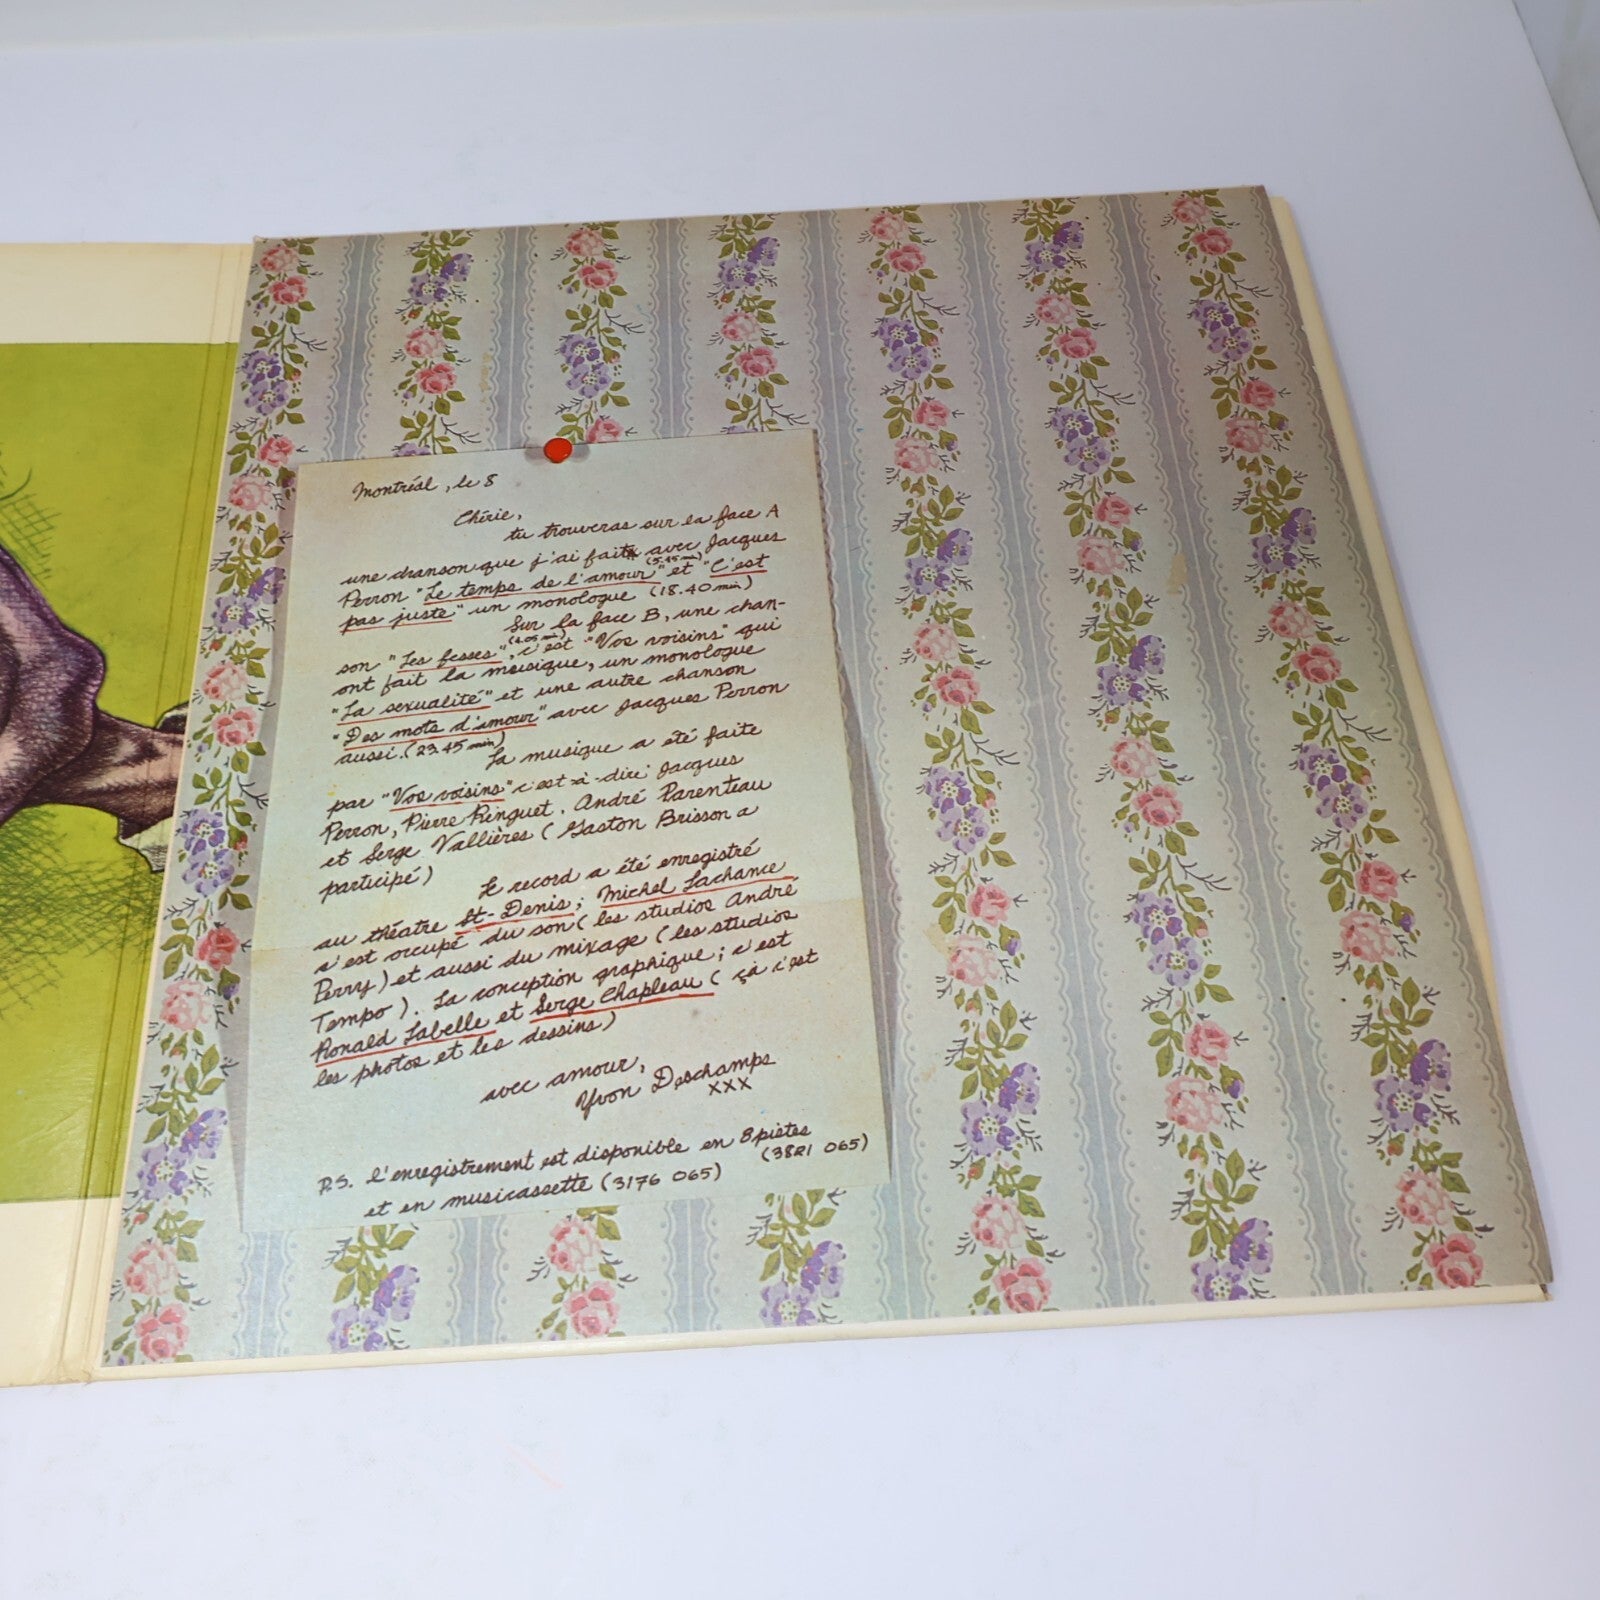 Montréal, le 8
Chérie,
tu trouveras sur la face A
une chanson que j'ai faite avec Jacques
(5.45 min)
Perron "Le temps de l'amour" et "C'est
pas juste" un monologue (18.40 min)
Sur la face B, une chan-
(4.05 min)
son "Les fesses", c'est "Vos voisins" qui
ont fait la musique, un monologue
"La sexualité" et une autre chanson
"Des mots d'amour" avec Jacques Perron
aussi. (23.45 min)
La musique a été faite
par "Vos voisins" c'est-à-dire Jacques
Perron, Pierre Ringuet, André Parenteau
et Serge Vallières (Gaston Brisson a
participé)
Le record a été enregistré
au théatre St-Denis; Michel Lachance
s'est occupé du son (les studios André
Perry) et aussi du mixage (les studios
Tempo). La conception graphique; c'est
Ronald Labelle et Serge Chapleau (ça c'est
les photos et les dessins)
avec amour,
Yvon Deschamps
XXX
P.S. l'enregistrement est disponible en 8 pistes
(3821 065)
et en musicassette (3176 065)